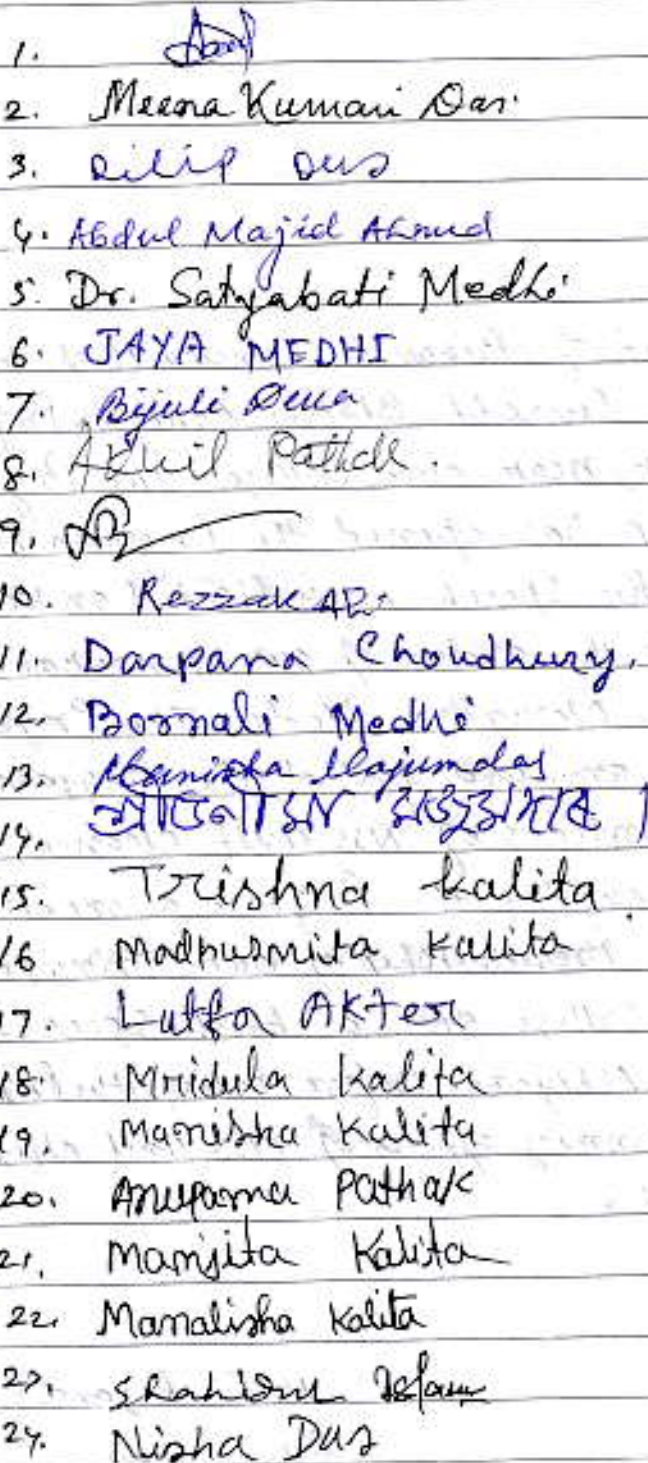 1.
2. Meena Kumari Das.
3. Dilip Das
4. Abdul Majid Ahmed
5. Dr. Satyabati Medhi
6. JAYA MEDHI
7. Bijuli Deka
8. Akhil Pathak.
9.
10. Rezzak Ali
11. Darpana Choudhury.
12. Bornali Medhi
13. Manisha Majumdar
14. মজুমদাৰ।
15. Trishna Kalita
16 Madhusmita Kalita
17. Lutfa AKter
18. Mridula Kalita
19. Manisha Kalita
20. Anupama Pathak
21. Manjita Kalita
22. Manalisha Kalita
23. Shahidul Islam
24. Nisha Das